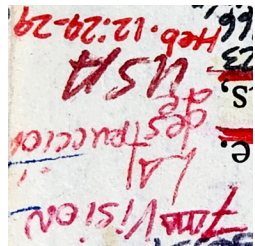 7ma VISION
LA
destruccion
de
USA
Heb. 12:29-29